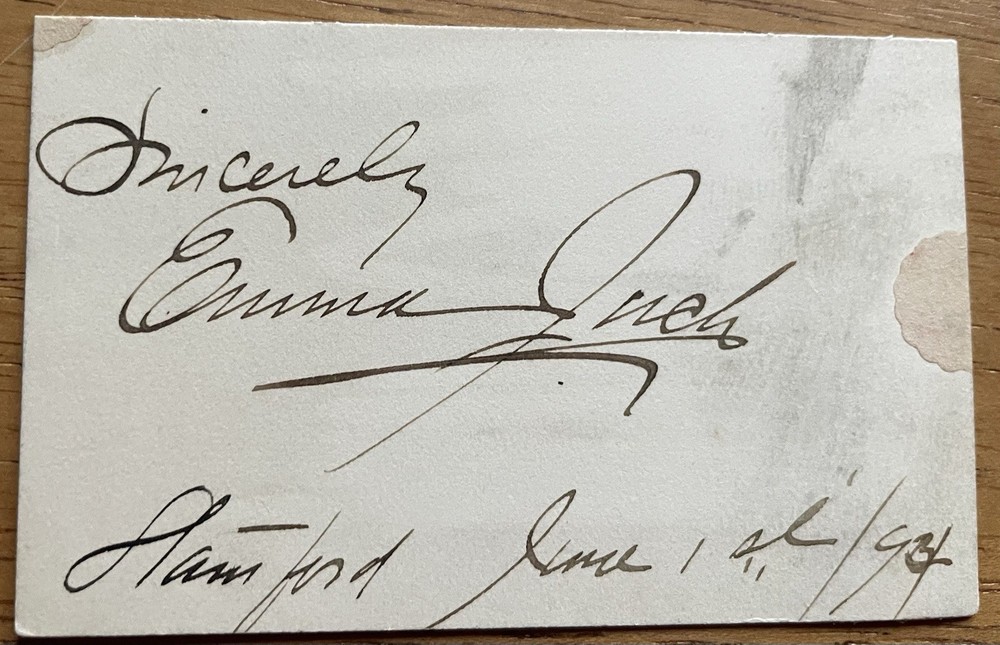 Sincerely
Emma Juch
Stamford June 1st /94